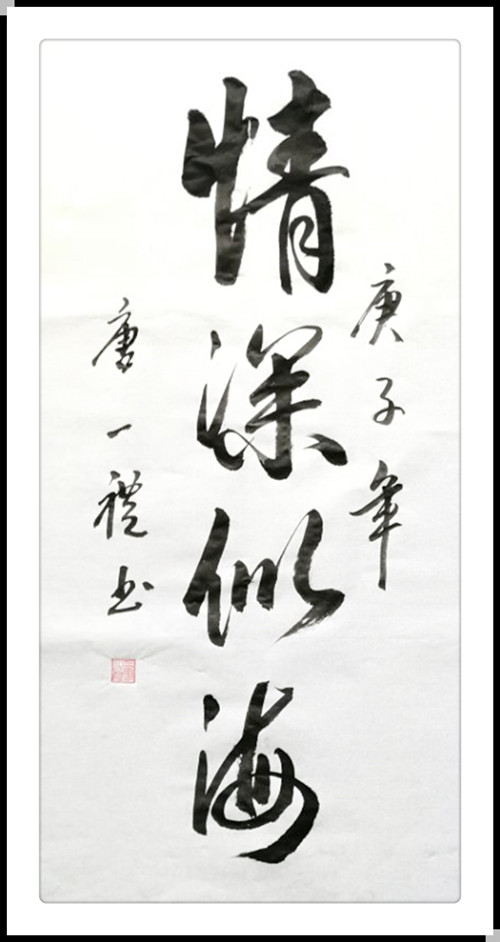 庚子年
情深似海
唐一禮书